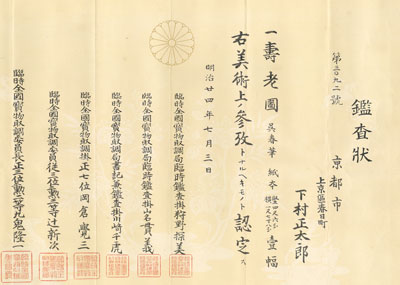 鑑査状
第三百九二號
京都市
上京區春日町
下村正太郎
一壽老圖 呉春筆 紙本 壹幅
右美術上ノ參攷トナルヘキモノト認定ス
明治廿四年七月三日
臨時全國寶物取調局臨時鑑査掛狩野探美
臨時全國寶物取調局臨時鑑査掛山名貫義
臨時全國寶物取調局書記兼鑑査掛川崎千虎
臨時全國寶物取調掛正七位岡倉覺三
臨時全國寶物取調委員從三位勲二等辻新次
臨時全國寶物取調委員長正三位勲二等九鬼隆一